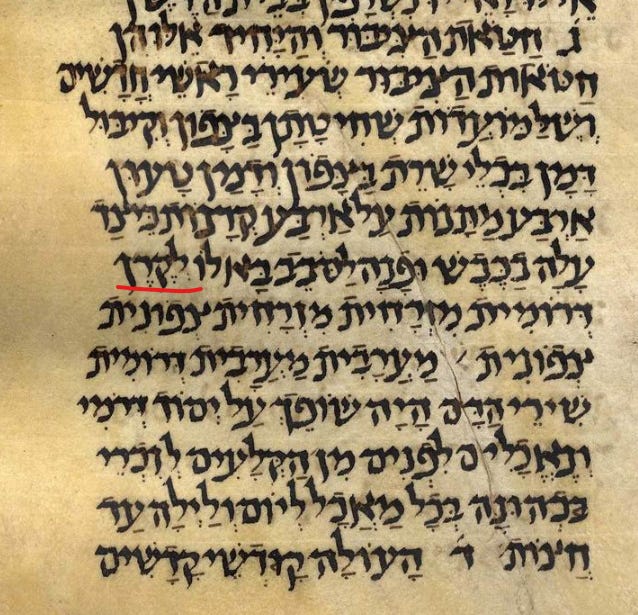 ג חטאת הציבור והיחיד אלו הן
חטאות הציבור שעירי ראשי חדשים
ושלמועדות שחיטתן בצפון וקיבול
דמן בכלי שרת בצפון ודמן טעון
ארבע מתנות על ארבע קרנות כיצד
עלה בכבש ופנה לסבב בא לו לקרן
דרומית מזרחית מזרחית צפונית
צפונית מערבית מערבית דרומית
שירי הדם היה שופך על יסוד דרמי
ונאכלים לפנים מן הקלעים לזכרי
בכהונה בכל מאכל ליום ולילה עד
חצות ד העולה קודשי קדשים